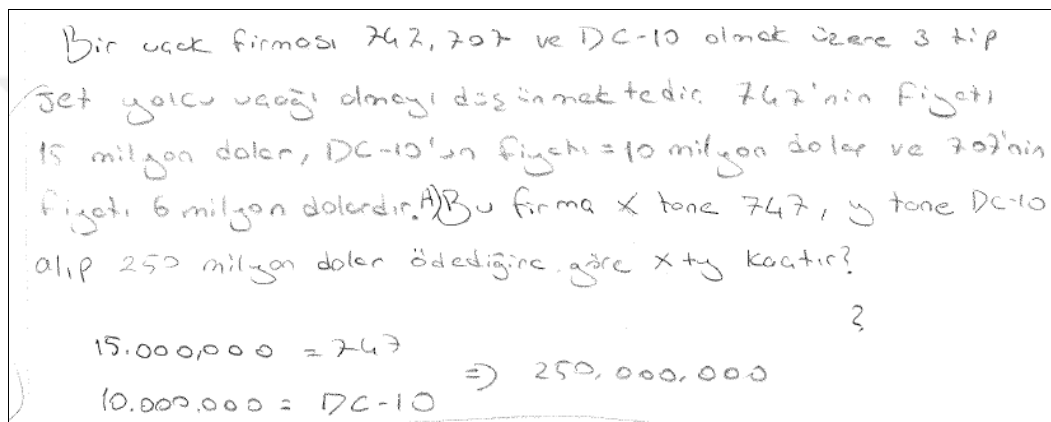 Bir uçak firması 747, 707 ve DC-10 olmak üzere 3 tip
jet yolcu uçağı almayı düşünmektedir. 747'nin fiyatı
15 milyon dolar, DC-10'un fiyatı = 10 milyon dolar ve 707'nin
fiyatı 6 milyon dolardır. A) Bu firma x tane 747, y tane DC-10
alıp 250 milyon dolar ödediğine göre x+y kaçtır?
?
15.000,000 = 747
=> 250,000,000
10.000.000 = DC-10